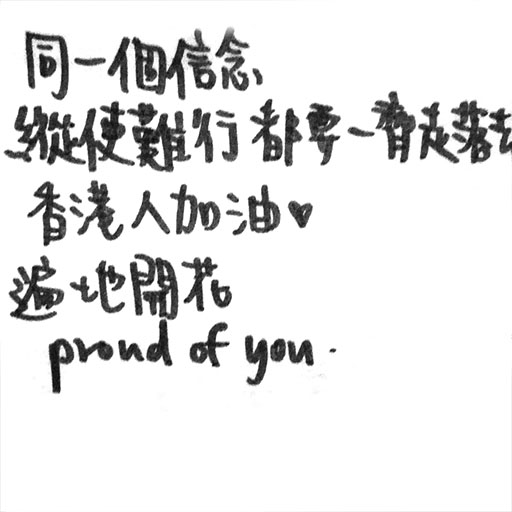 同一個信念
縱使難行都要一齊走落去
香港人加油♥
遍地開花
proud of you.